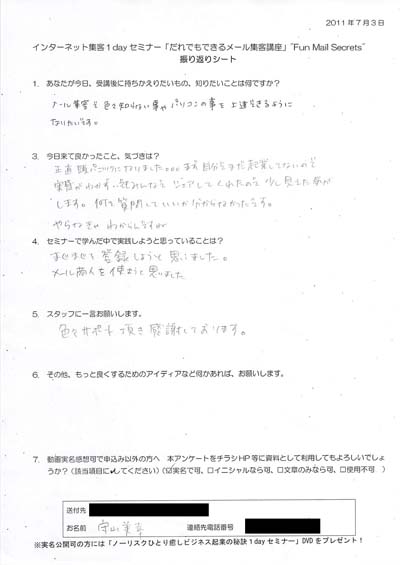 2011年7月3日
インターネット集客1dayセミナー「だれでもできるメール集客講座」"Fun Mail Secrets"
振り返りシート
1. あなたが今日、受講後に持ちかえりたいもの、知りたいことは何ですか?
メール集客で色々知らない事やパソコンの事を上達できるように
なりたいです。
3. 今日来て良かったこと、気づきは?
正直頭パニックになりました。。。まず自分はまだ起業してないので
実際がわかず、
みんなで シェアしてくれたので 少し見えた気が
します。何て質問していいか分からなかったです。
やらねば わからんですが
4. セミナーで学んだ中で実践しようと思っていることは?
まぐまぐを登録しようと思いました。
メール商人を使おうと思いました
5. スタッフに一言お願いします。
色々サポート頂き感謝しております。
6. その他、もっと良くするためのアイディアなど何かあれば、お願いします。
7. 動画実名感想可で申込み以外の方へ 本アンケートをチラシHP等に資料として利用してもよろしいでしょ
うか?(該当項目に✓してください)(☑実名で可、□イニシャルなら可、□文章のみなら可、□使用不可 )
送付先
お名前 連絡先電話番号
※実名公開可の方には「ノーリスクひとり癒しビジネス起業の秘訣1dayセミナー」DVDをプレゼント!